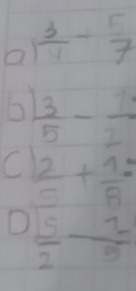 a) 3/4 + 5/7
b) 3/5 - 1/2
C) 2/5 + 1/8 =
D) 5/2 - 2/5